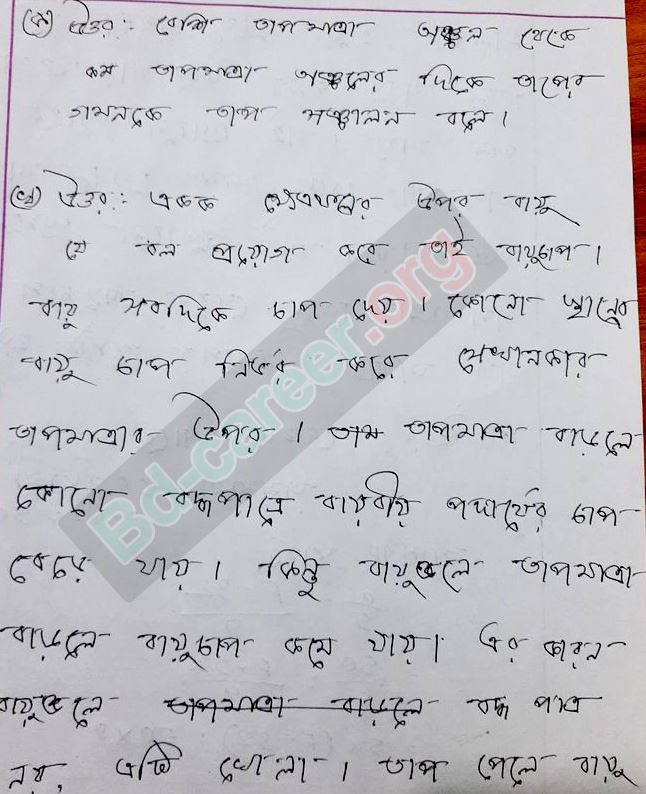 (ক) উত্তর: বেশি তাপমাত্রা অঞ্চল থেকে
কম তাপমাত্রা অঞ্চলের দিকে তাপের
গমনকে তাপ সঞ্চালন বলে।
(খ) উত্তর: একক ক্ষেত্রফলের উপর বায়ু
যে বল প্রয়োগ করে তাই বায়ুচাপ।
বায়ু সবদিকে চাপ দেয়। কোনো স্থানের
বায়ু চাপ নির্ভর করে সেখানকার
তাপমাত্রার উপর। তাম তাপমাত্রা বাড়লে
কোনো বদ্ধপাত্রে বায়বীয় পদার্থের চাপ
বেড়ে যায়। কিন্তু বায়ুমন্ডলে তাপমাত্রা
বাড়লে বায়ুচাপ কমে যায়। এর কারন
বায়ুমন্ডলে তাপমাত্রা বাড়লে বদ্ধ পাত্র
নয়, এটি খোলা। তাপ পেলে বায়ু
Bd-career.org